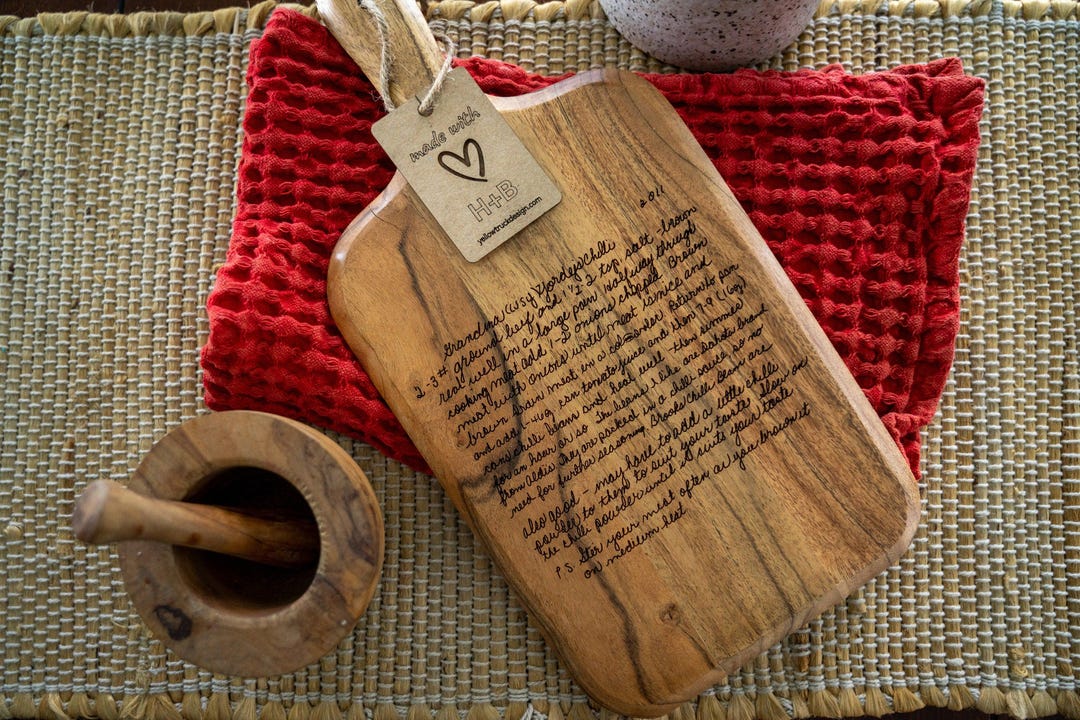 made with
H+B
yellowtruckdesign.com
2011
Grandma Gordey's Chili
2-3# ground beef and 1 1/2-2 tsp salt - brown
real well in a large pan. Halfway through
cooking meat add 1-2 onions chopped. Brown
meat with onions until meat is nice and
brown. Drain meat in a colander. Return to pan
and add 1 46oz can tomato juice and then 7-9 (16oz)
cans chili beans and heat well then summer
for an hour or so. The beans I like are Dakota brand
from Aldis. They are packed in a chili sauce so no
need for further seasoning. Brooks Chili Beans are
also good - may have to add a little chili
powder to them to suit your taste. Go slow on
the chili powder until it suits your taste
P.S. Stir your meat often as you brown it
on medium heat